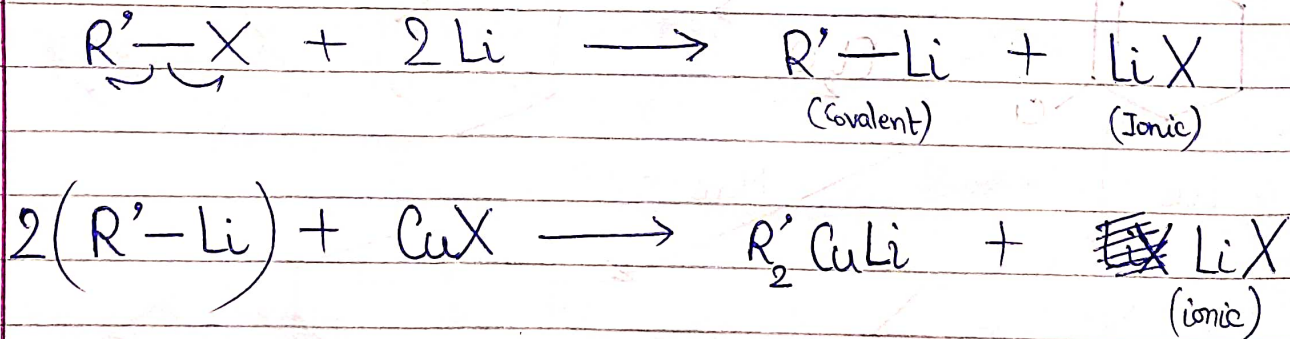 R'—X + 2 Li ⟶ R'—Li + LiX
(Covalent) (Ionic)
2(R'—Li) + CuX ⟶ R'₂CuLi + LiX
(ionic)